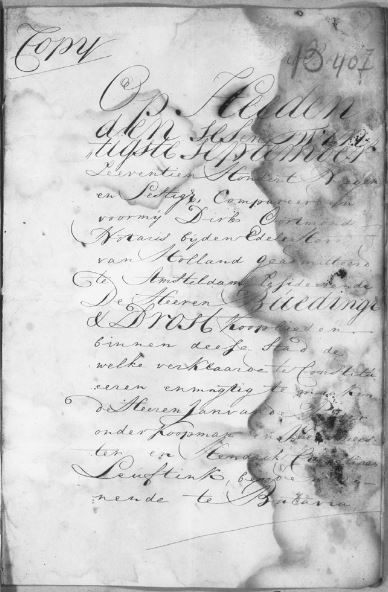 Copy
43 407
Op Heeden
den sesen twin
tigste September
Seeventien Hondert Negen
en Sestig, Compareerden
voor my Dirk
Notaris by den Edele Hove
van Holland geadmitteerd
te Amsteldam resideerende
De Heeren Buedinge
& Drost kooplieden
binnen deese Stad de
welke verklaarde te Constitu
eeren en magtig te maken
de Heeren Jan van de
onderkoopman en
ter en Hendrik
Leuftink,
nende te Batavia